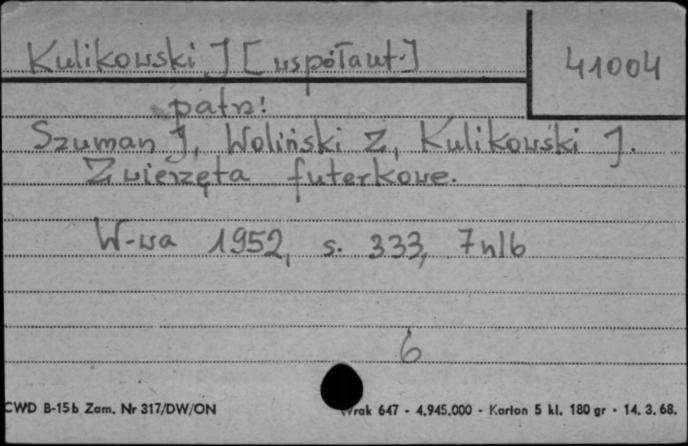 Kulikowski J [współaut.]
41004
patrz!
Szuman J, Woliński Z, Kulikowski J.
Zwierzęta futerkowe.
W-wa 1952, s. 333, 7 nlb
6
CWD B-15b Zam. Nr 317/DW/ON
647 - 4.945.000 - Karton 5 kl. 180 gr - 14. 3. 68.